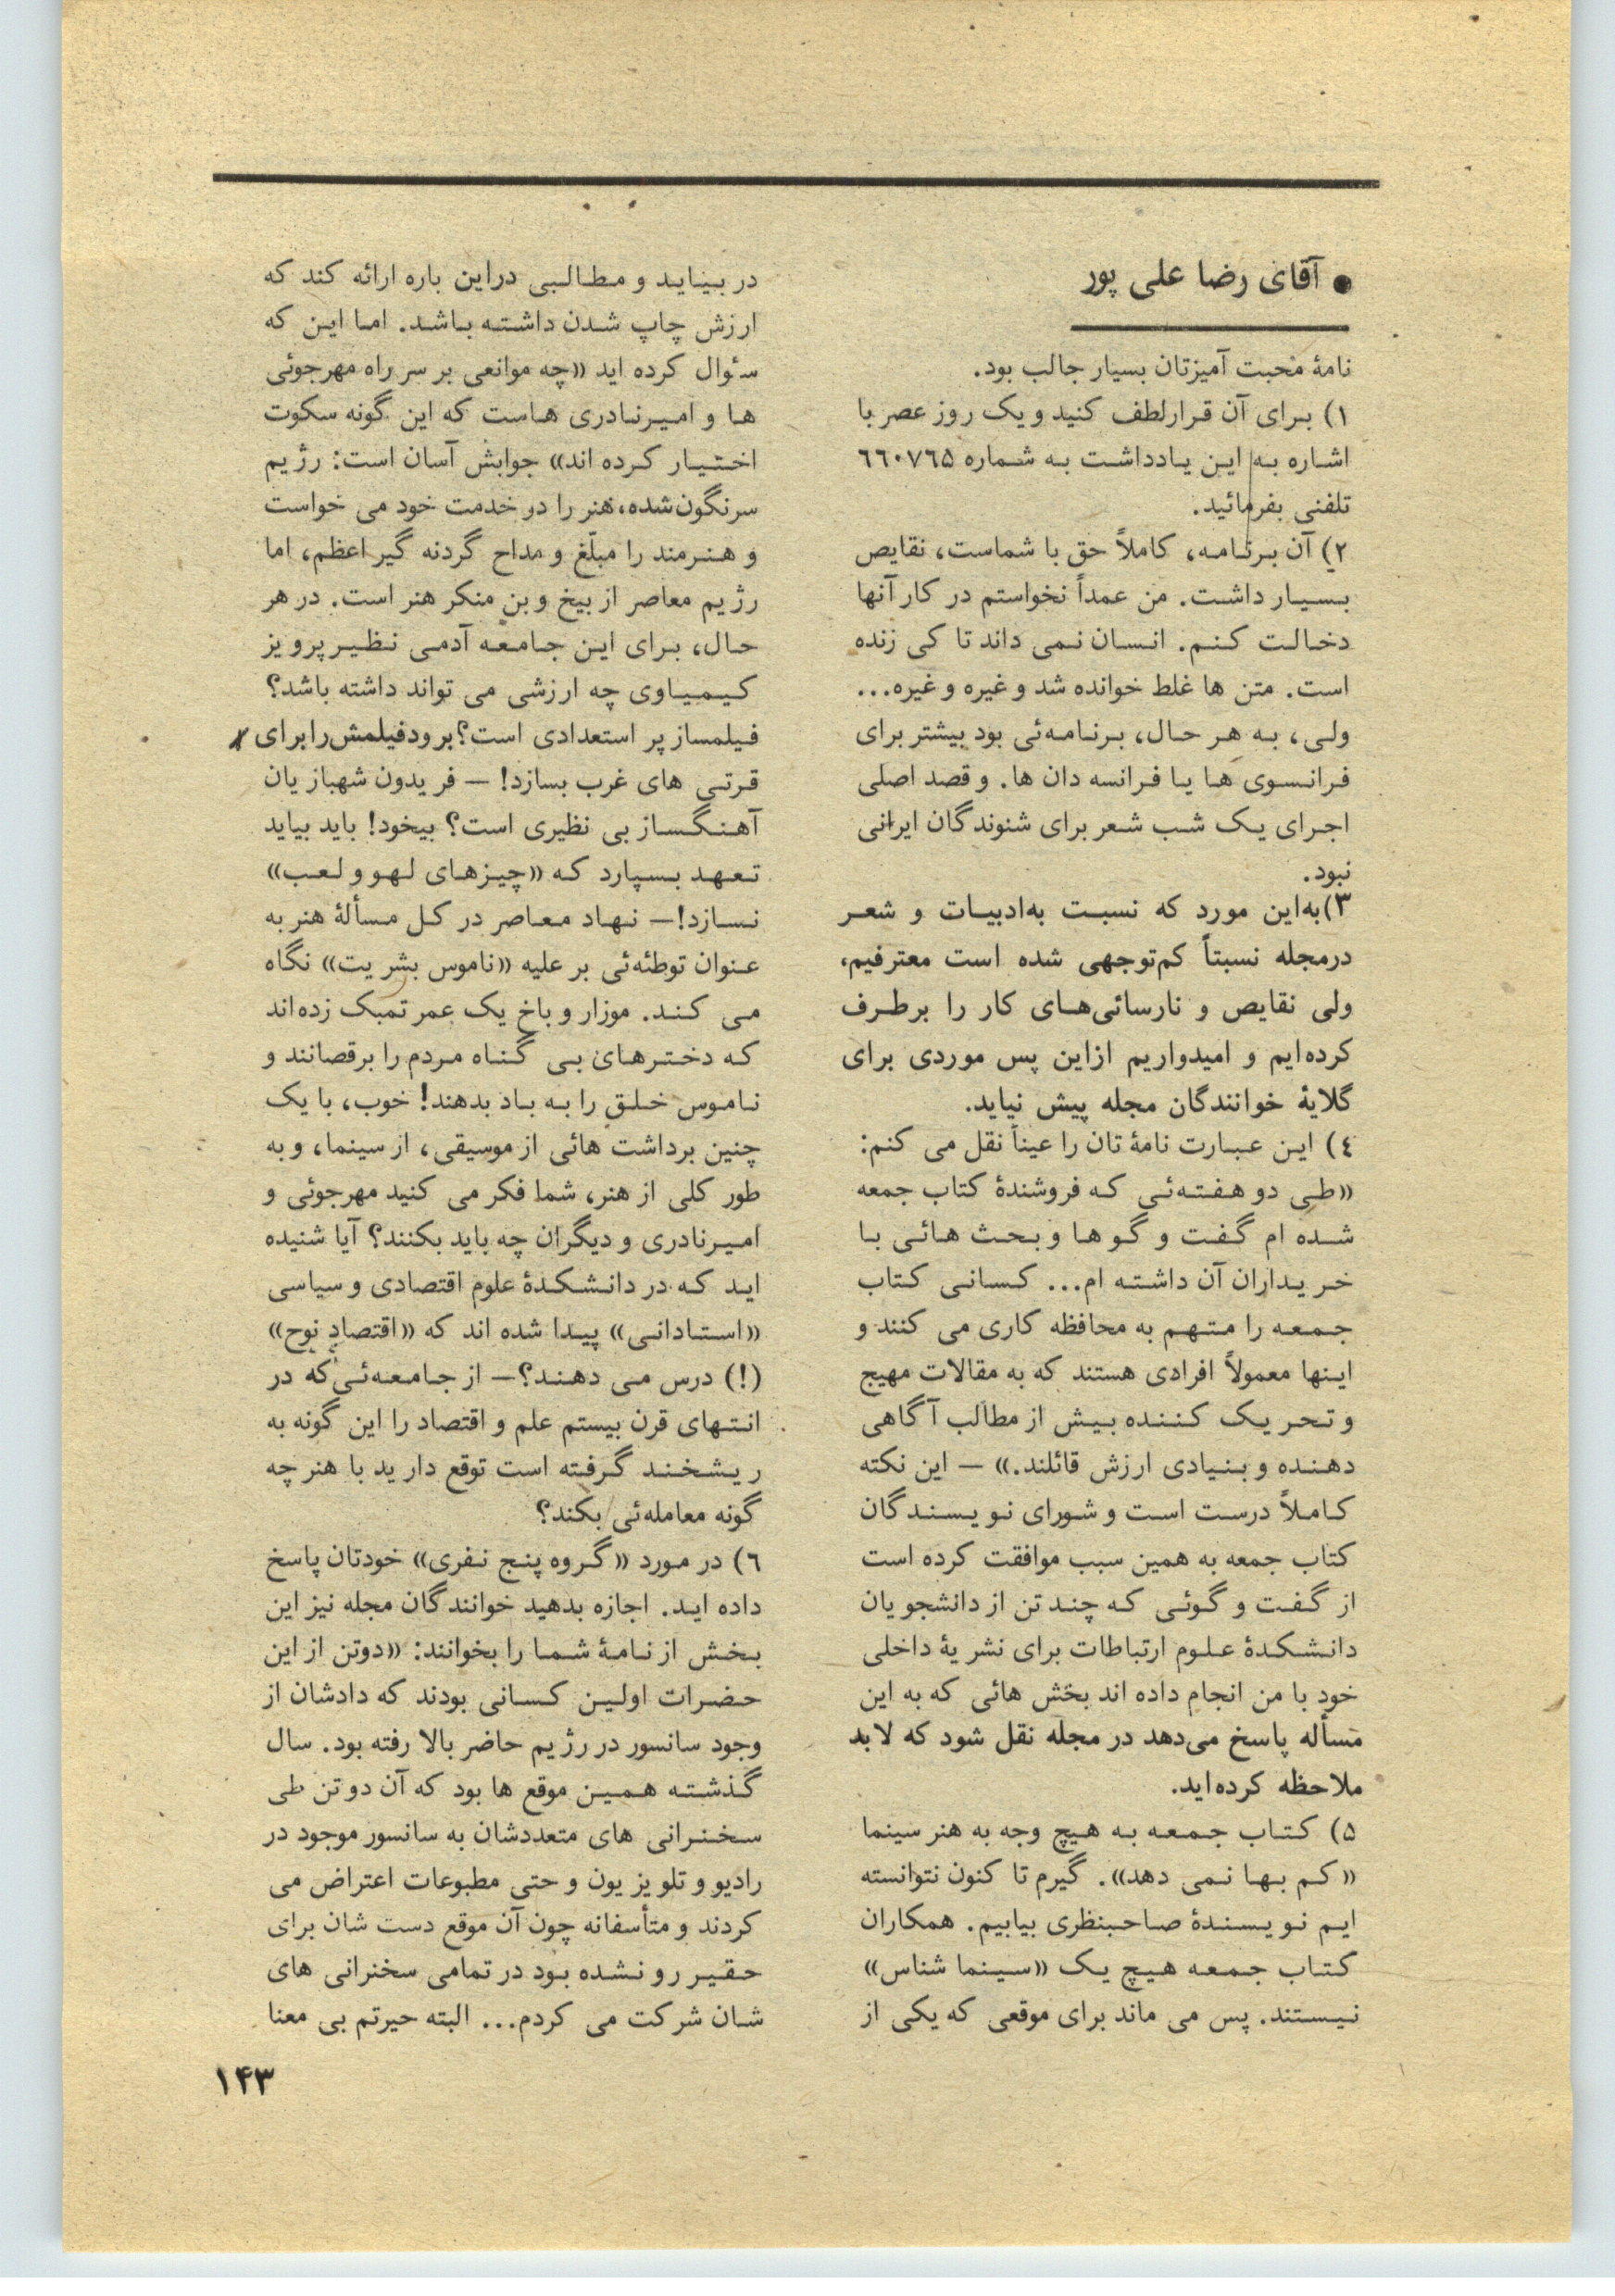 ● آقای رضا علی پور
نامهٔ محبت آمیزتان بسیار جالب بود.
۱) برای آن قرار لطف کنید و یک روز عصر با
اشاره به این یادداشت به شماره ٦٦٠٧٦٥
تلفنی بفرمائید.
۲) آن برنامه، کاملاً حق با شماست، نقایص
بسیار داشت. من عمداً نخواستم در کار آنها
دخالت کنم. انسان نمی داند تا کی زنده
است. متن ها غلط خوانده شد و غیره و غیره...
ولی، به هر حال، برنامه‌ئی بود بیشتر برای
فرانسوی ها یا فرانسه دان ها. و قصد اصلی
اجرای یک شب شعر برای شنوندگان ایرانی
نبود.
۳) به‌این مورد که نسبت به‌ادبیات و شعر
درمجله نسبتاً کم‌توجهی شده است معترفیم،
ولی نقایص و نارسائی‌های کار را برطرف
کرده‌ایم و امیدواریم ازاین پس موردی برای
گلایهٔ خوانندگان مجله پیش نیاید.
٤) این عبارت نامهٔ تان را عیناً نقل می کنم:
«طی دو هفته‌ئی که فروشندهٔ کتاب جمعه
شده ام گفت و گو ها و بحث هائی با
خریداران آن داشته ام... کسانی کتاب
جمعه را متهم به محافظه کاری می کنند و
اینها معمولاً افرادی هستند که به مقالات مهیج
و تحریک کننده بیش از مطالب آگاهی
دهنده و بنیادی ارزش قائلند.» — این نکته
کاملاً درست است و شورای نویسندگان
کتاب جمعه به همین سبب موافقت کرده است
از گفت و گوئی که چند تن از دانشجویان
دانشکدهٔ علوم ارتباطات برای نشریهٔ داخلی
خود با من انجام داده اند بخش هائی که به این
مسأله پاسخ می‌دهد در مجله نقل شود که لابد
ملاحظه کرده‌اید.
۵) کتاب جمعه به هیچ وجه به هنر سینما
«کم بها نمی دهد». گیرم تا کنون نتوانسته
ایم نویسندهٔ صاحبنظری بیابیم. همکاران
کتاب جمعه هیچ یک «سینما شناس»
نیستند. پس می ماند برای موقعی که یکی از
در بیاید و مطالبی دراین باره ارائه کند که
ارزش چاپ شدن داشته باشد. اما این که
سئوال کرده اید «چه موانعی بر سر راه مهرجوئی
ها و امیرنادری هاست که این گونه سکوت
اختیار کرده اند» جوابش آسان است: رژیم
سرنگون شده، هنر را در خدمت خود می خواست
و هنرمند را مبلّغ و مداح گردنه گیر اعظم، اما
رژیم معاصر از بیخ و بن منکر هنر است. در هر
حال، برای این جامعه آدمی نظیر پرویز
کیمیاوی چه ارزشی می تواند داشته باشد؟
فیلمساز پر استعدادی است؟ برود فیلمش را برای
قرتی های غرب بسازد! — فریدون شهبازیان
آهنگساز بی نظیری است؟ بیخود! باید بیاید
تعهد بسپارد که «چیزهای لهو و لعب»
نسازد!— نهاد معاصر در کل مسألهٔ هنر به
عنوان توطئه‌ئی بر علیه «ناموس بشریت» نگاه
می کند. موزار و باخ یک عمر تمبک زده‌اند
که دخترهای بی گناه مردم را برقصانند و
ناموس خلق را به باد بدهند! خوب، با یک
چنین برداشت هائی از موسیقی، از سینما، و به
طور کلی از هنر، شما فکر می کنید مهرجوئی و
امیرنادری و دیگران چه باید بکنند؟ آیا شنیده
اید که در دانشکدهٔ علوم اقتصادی و سیاسی
«استادانی» پیدا شده اند که «اقتصادِ نوح»
(!) درس می دهند؟— از جامعه‌ئی که در
انتهای قرن بیستم علم و اقتصاد را این گونه به
ریشخند گرفته است توقع دارید با هنر چه
گونه معامله‌ئی بکند؟
٦) در مورد «گروه پنج نفری» خودتان پاسخ
داده اید. اجازه بدهید خوانندگان مجله نیز این
بخش از نامهٔ شما را بخوانند: «دوتن از این
حضرات اولین کسانی بودند که دادشان از
وجود سانسور در رژیم حاضر بالا رفته بود. سال
گذشته همین موقع ها بود که آن دو تن طی
سخنرانی های متعددشان به سانسور موجود در
رادیو و تلویزیون و حتی مطبوعات اعتراض می
کردند و متأسفانه چون آن موقع دست شان برای
حقیر رو نشده بود در تمامی سخنرانی های
شان شرکت می کردم... البته حیرتم بی معنا
۱۴۳